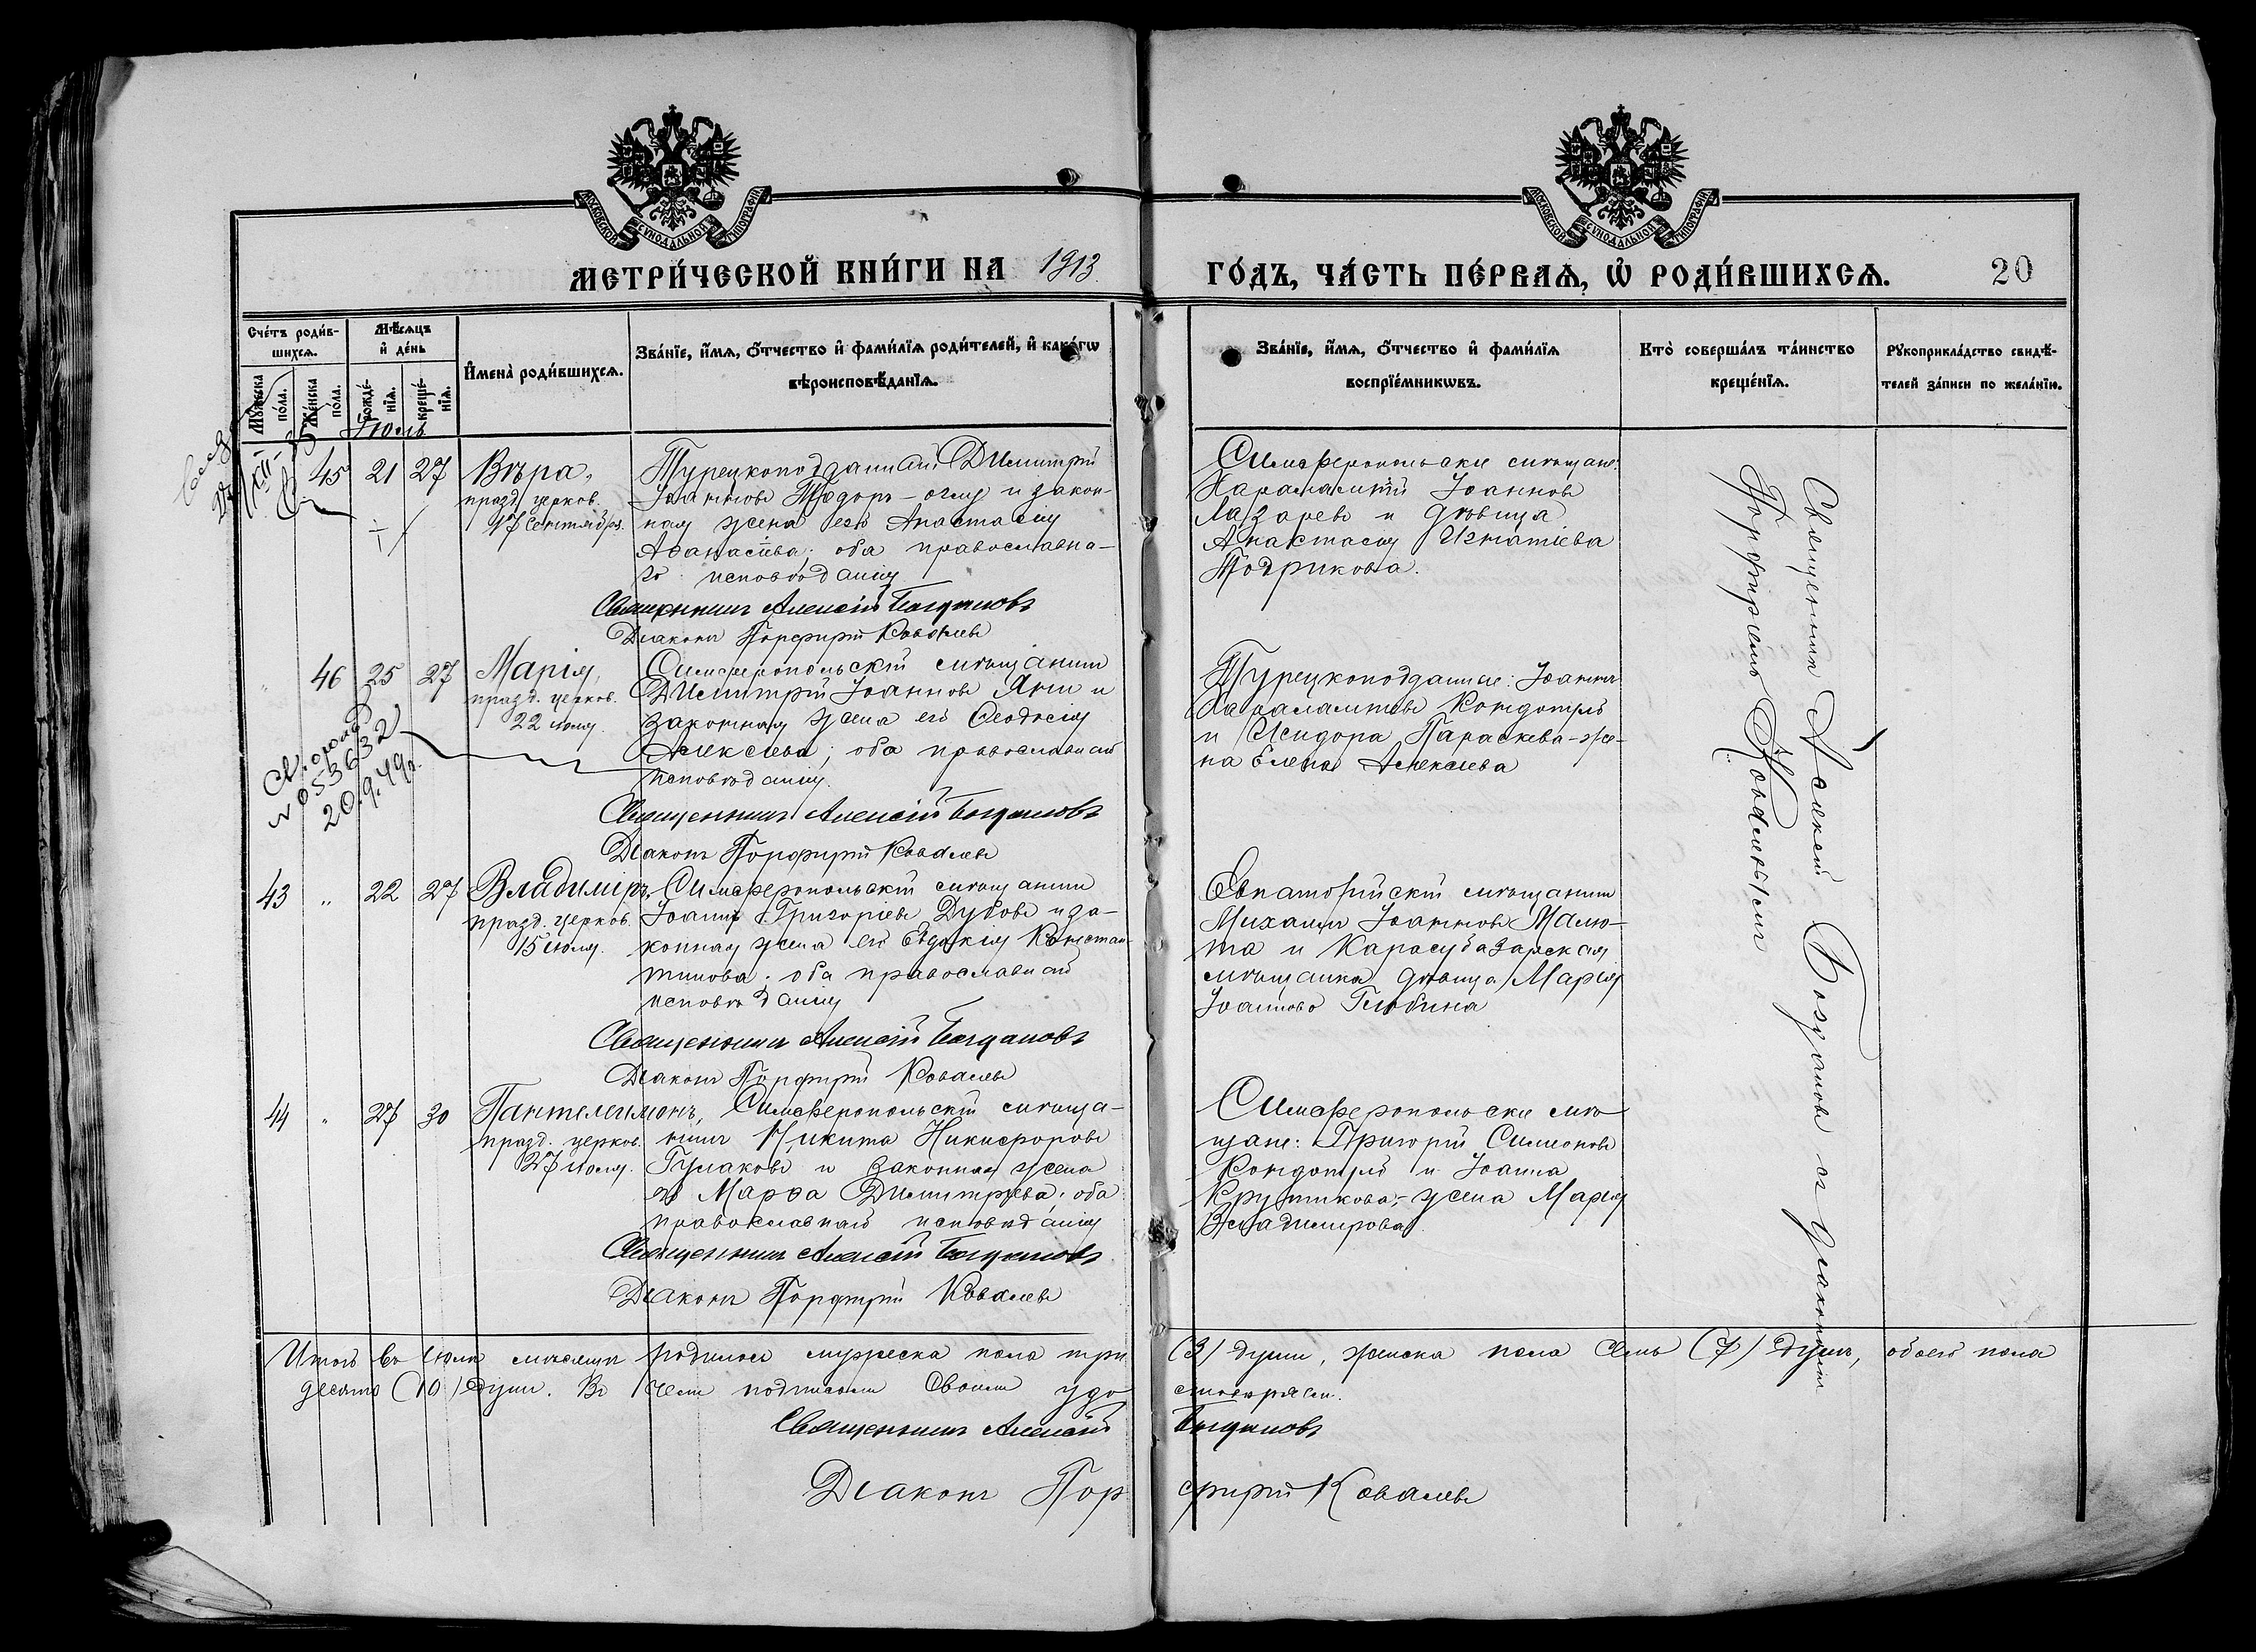 МОСКОВСКОЙ СѴНОДАЛЬНОЙ ТИПОГРАФІИ
МОСКОВСКОЙ СѴНОДАЛЬНОЙ ТИПОГРАФІИ
МЕТРИ́ЧЕСКОЙ КНИ́ГИ НА 1913 ГО́ДЪ, ЧА́СТЬ ПЕ́РВАѦ, Ѽ РОДИ́ВШИХСѦ. 20
Сче́тъ роди́вшихсѧ.
Мѣ́сѧцъ и҆ де́нь
И҆мена̀ роди́вшихсѧ.
Зва́нїе, и҆́мѧ, ѻ҆́тчество и҆ фами́лїѧ роди́телей, и҆ како́гѡ
вѣроисповѣ́данїѧ.
Зва́нїе, и҆́мѧ, ѻ҆́тчество и҆ фами́лїѧ
воспрїе́мникѡвъ.
Кто̀ соверша́лъ та́инство
креще́нїѧ.
Рꙋкоприкла́дство свидѣ́-
телей за́писи по жела́нїю.
Мꙋ́жеска по́ла.
Же́нска по́ла.
рожде́нїѧ.
креще́нїѧ.
Іюль
45 21 27 Вѣра,
празд. церков.
17 Сентября.
Турецкоподданный Димитрій
Іоанновъ Тодоръ-оглу и закон-
ная жена его Анастасія
Аѳанасіева; оба православна-
го исповѣданія
Священникъ Алексій Богдановъ
Діаконъ Порфирій Ковалевъ
Симферопольскіе мѣщане:
Харалампій Іоанновъ
Лазаревъ и дѣвица
Анастасія Игнатіева
Тодрикова.
46 25 27 Марія,
празд. церков.
22 іюля.
Симферопольскій мѣщанинъ
Димитрій Іоанновъ Яни и
законная жена его Ѳеодосія
Алексіева; оба православнаго
исповѣданія.
Священникъ Алексій Богдановъ
Діаконъ Порфирій Ковалевъ
№ 053632
20.9.49г.
Турецкоподданные: Іоаннъ
Харалампіевъ Кондогулъ
и Исидора Параскева-же-
на Елена Алексіева
43 " 22 27 Владиміръ,
празд. церков.
15 іюля.
Симферопольскій мѣщанинъ
Іоаннъ Григоріевъ Дубовъ и за-
конная жена его Евдокія Констан-
тинова; оба православнаго
исповѣданія
Священникъ Алексій Богдановъ
Діаконъ Порфирій Ковалевъ
Евпаторійскій мѣщанинъ
Михаилъ Іоанновъ Малю-
та и Карасубазарская
мѣщанка дѣвица Марія
Іоаннова Глобина
44 " 27 30 Пантелеимонъ,
празд. церков.
27 іюля.
Симферопольскій мѣща-
нинъ Никита Никифоровъ
Гулаковъ и законная жена
его Марѳа Димитріева; оба
православнаго исповѣданія
Священникъ Алексій Богдановъ
Діаконъ Порфирій Ковалевъ
Симферопольскіе мѣ-
щане: Григорій Симеоновъ
Кондогулъ и Іоанна
Крутикова-жена Марія
Владимірова.
Священникъ Алексій Богдановъ съ діакономъ
Порфиріемъ Ковалевымъ
Итого въ іюлѣ мѣсяцѣ родилось мужеска пола три (3) души, женска пола семь (7) душъ, обоего пола
десять (10) душъ. Въ чемъ подписомъ своимъ удостовѣряемъ.
Священникъ Алексій Богдановъ
Діаконъ Порфирій Ковалевъ